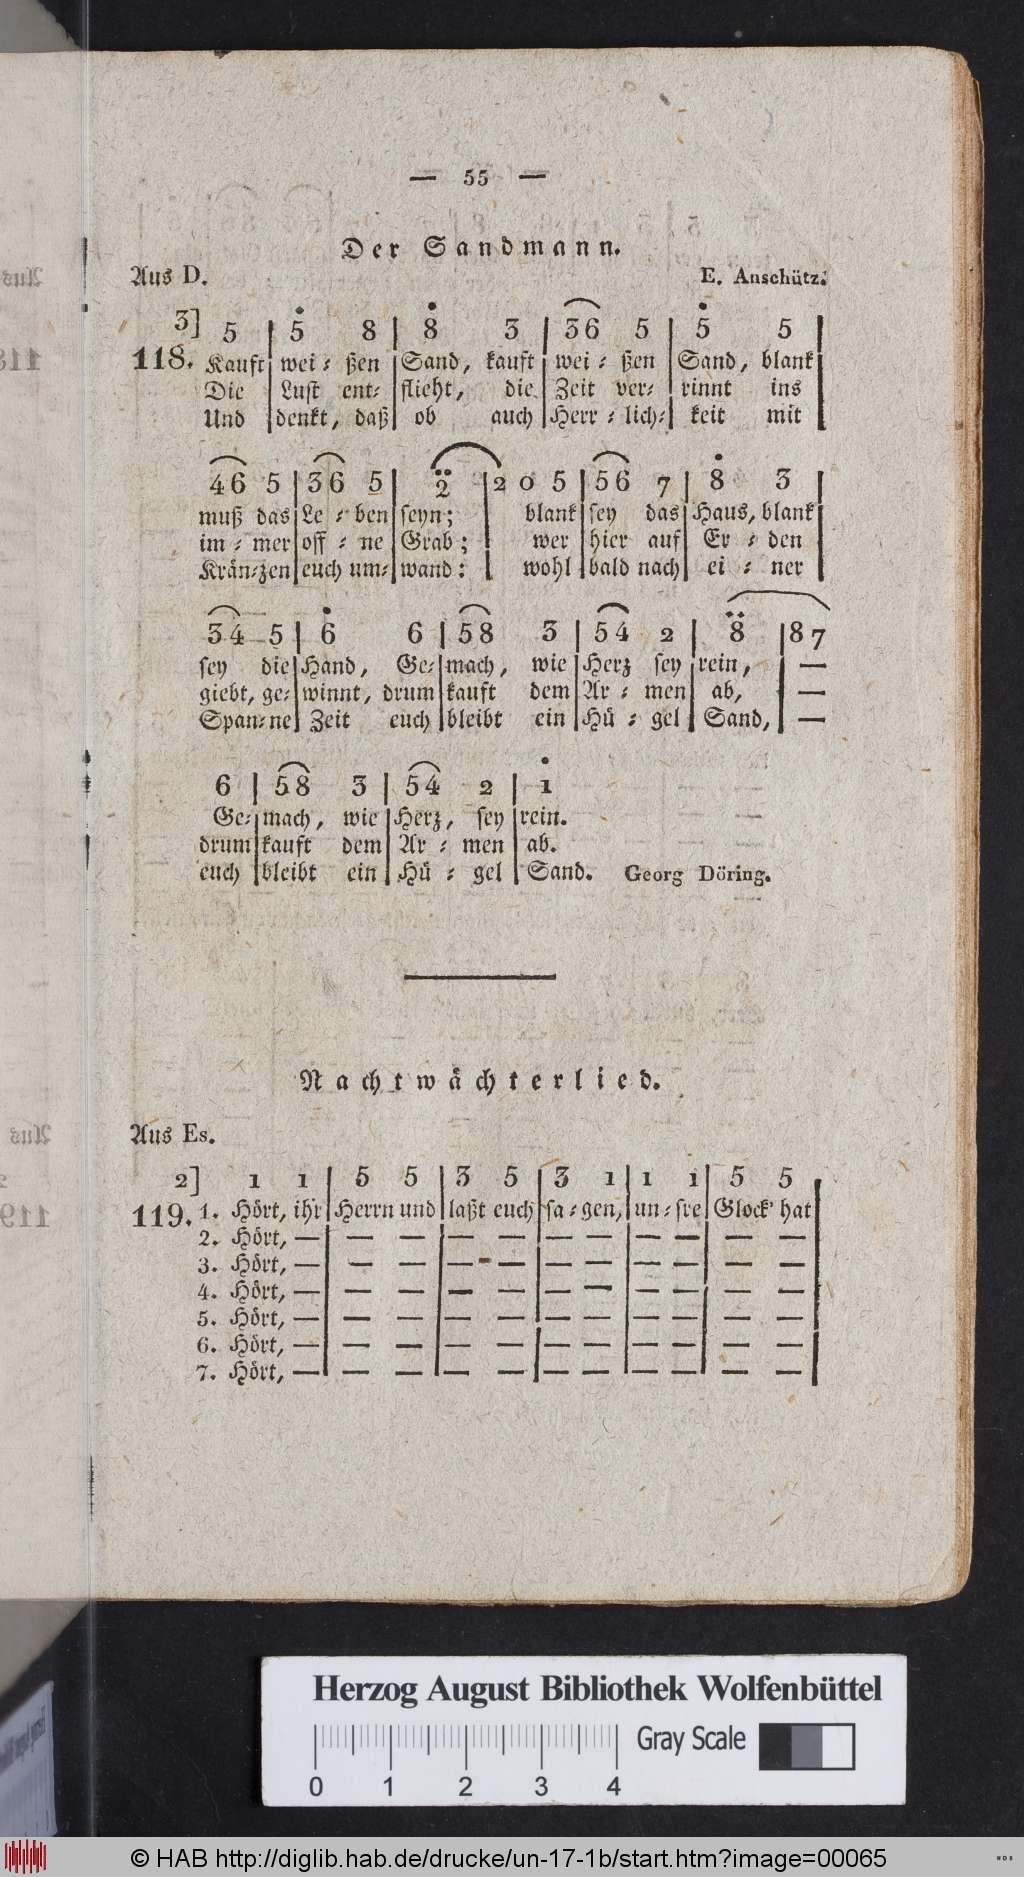 — 55 —
Der Sandmann.
Aus D. E. Anschütz.
3] 5 | 5 8 | 8 3 | 36 5 | 5 5 |
118. Kauft wei-ßen Sand, kauft wei-ßen Sand, blank
Die Lust ent-flieht, die Zeit ver-rinnt ins
Und denkt, daß ob auch Herr-lich-keit mit
46 5 | 36 5 | 2 | 2 0 5 | 56 7 | 8 3 |
muß das Le-ben seyn; blank sey das Haus, blank
im-mer off-ne Grab; wer hier auf Er-den
Krän-zen euch um-wand: wohl bald nach ei-ner
34 5 | 6 6 | 58 3 | 54 2 | 8 | 8 7
sey die Hand, Ge-mach, wie Herz sey rein, —
giebt, ge-winnt, drum kauft dem Ar-men ab, —
Span-ne Zeit euch bleibt ein Hü-gel Sand, —
6 | 58 3 | 54 2 | 1
Ge-mach, wie Herz, sey rein.
drum kauft dem Ar-men ab.
euch bleibt ein Hü-gel Sand. Georg Döring.
Nachtwächterlied.
Aus Es.
2] 1 1 | 5 5 | 3 5 | 3 1 | 1 1 | 5 5 |
119. 1. Hört, ihr Herrn und laßt euch sa-gen, un-sre Glock' hat
2. Hört, — — — — — — — — — — —
3. Hört, — — — — — — — — — — —
4. Hört, — — — — — — — — — — —
5. Hört, — — — — — — — — — — —
6. Hört, — — — — — — — — — — —
7. Hört, — — — — — — — — — — —
Herzog August Bibliothek Wolfenbüttel
Gray Scale
0 1 2 3 4
© HAB http://diglib.hab.de/drucke/un-17-1b/start.htm?image=00065